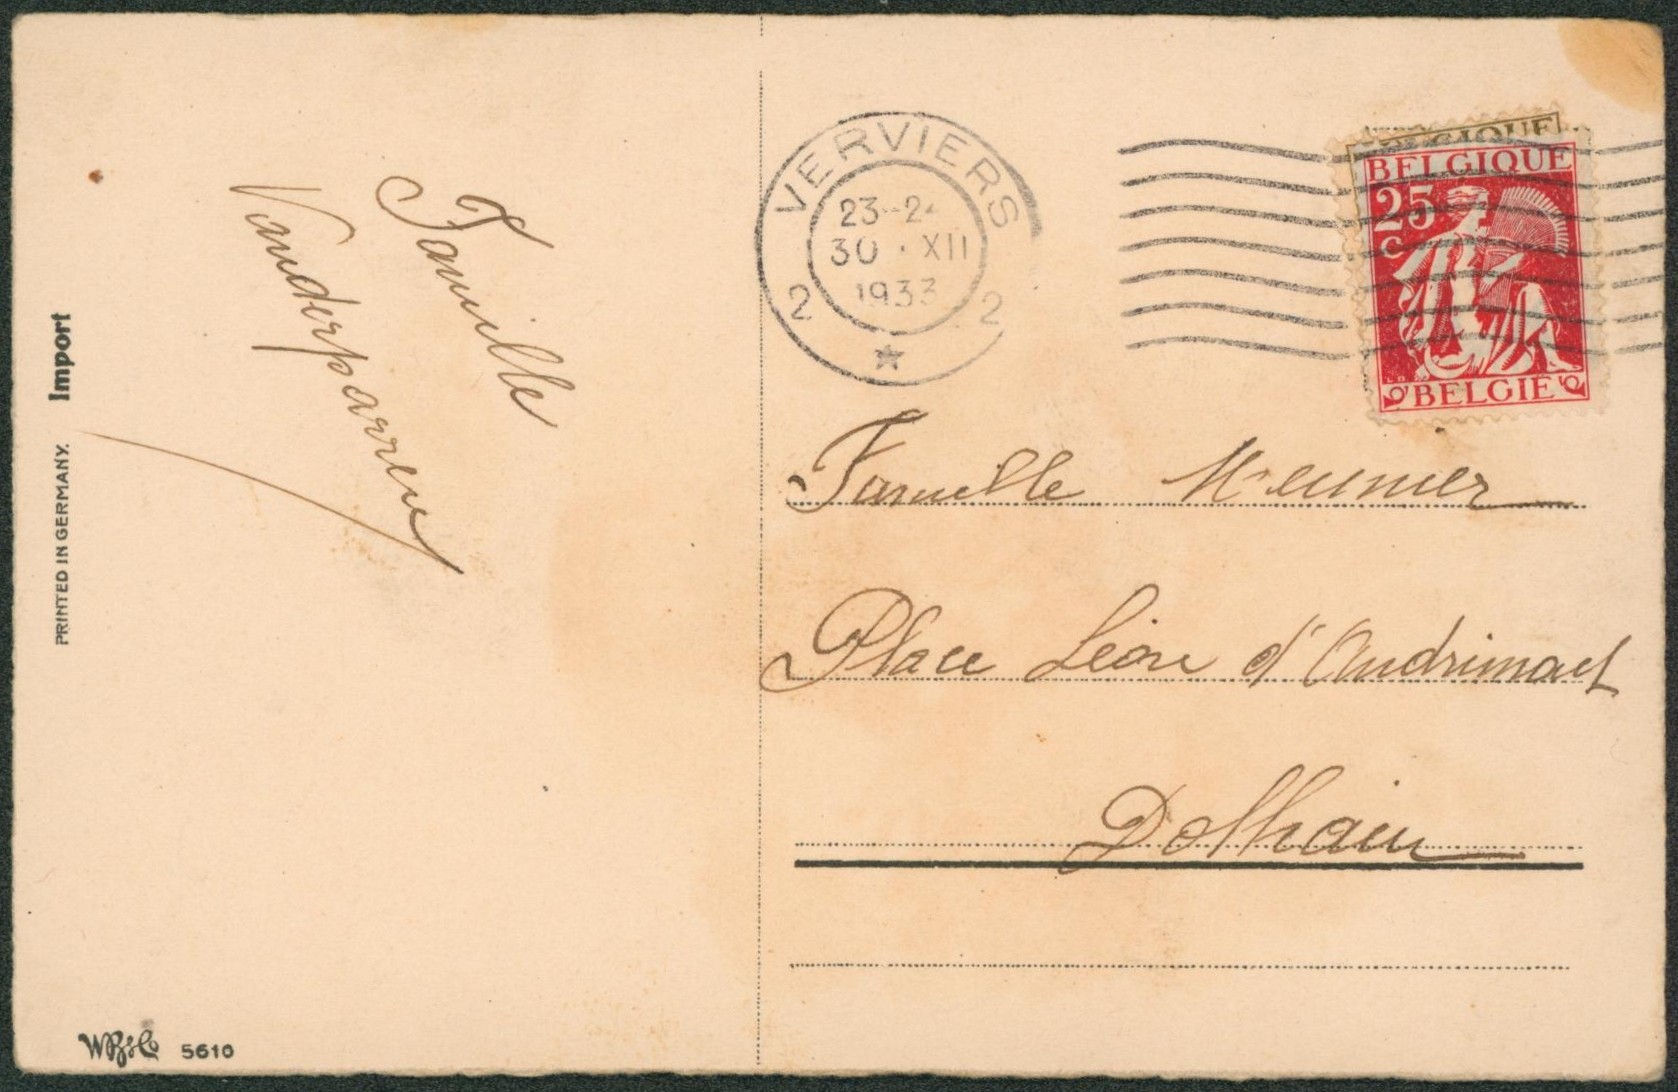 Famille
Vanderparren
PRINTED IN GERMANY. Import
WB&Co 5610
VERVIERS
23-24
30 · XII
1933
2 2
BELGIQUE
BELGIQUE
25
C
BELGIE
Famille Meunier
Place Léon d'Andrimont
Dolhain